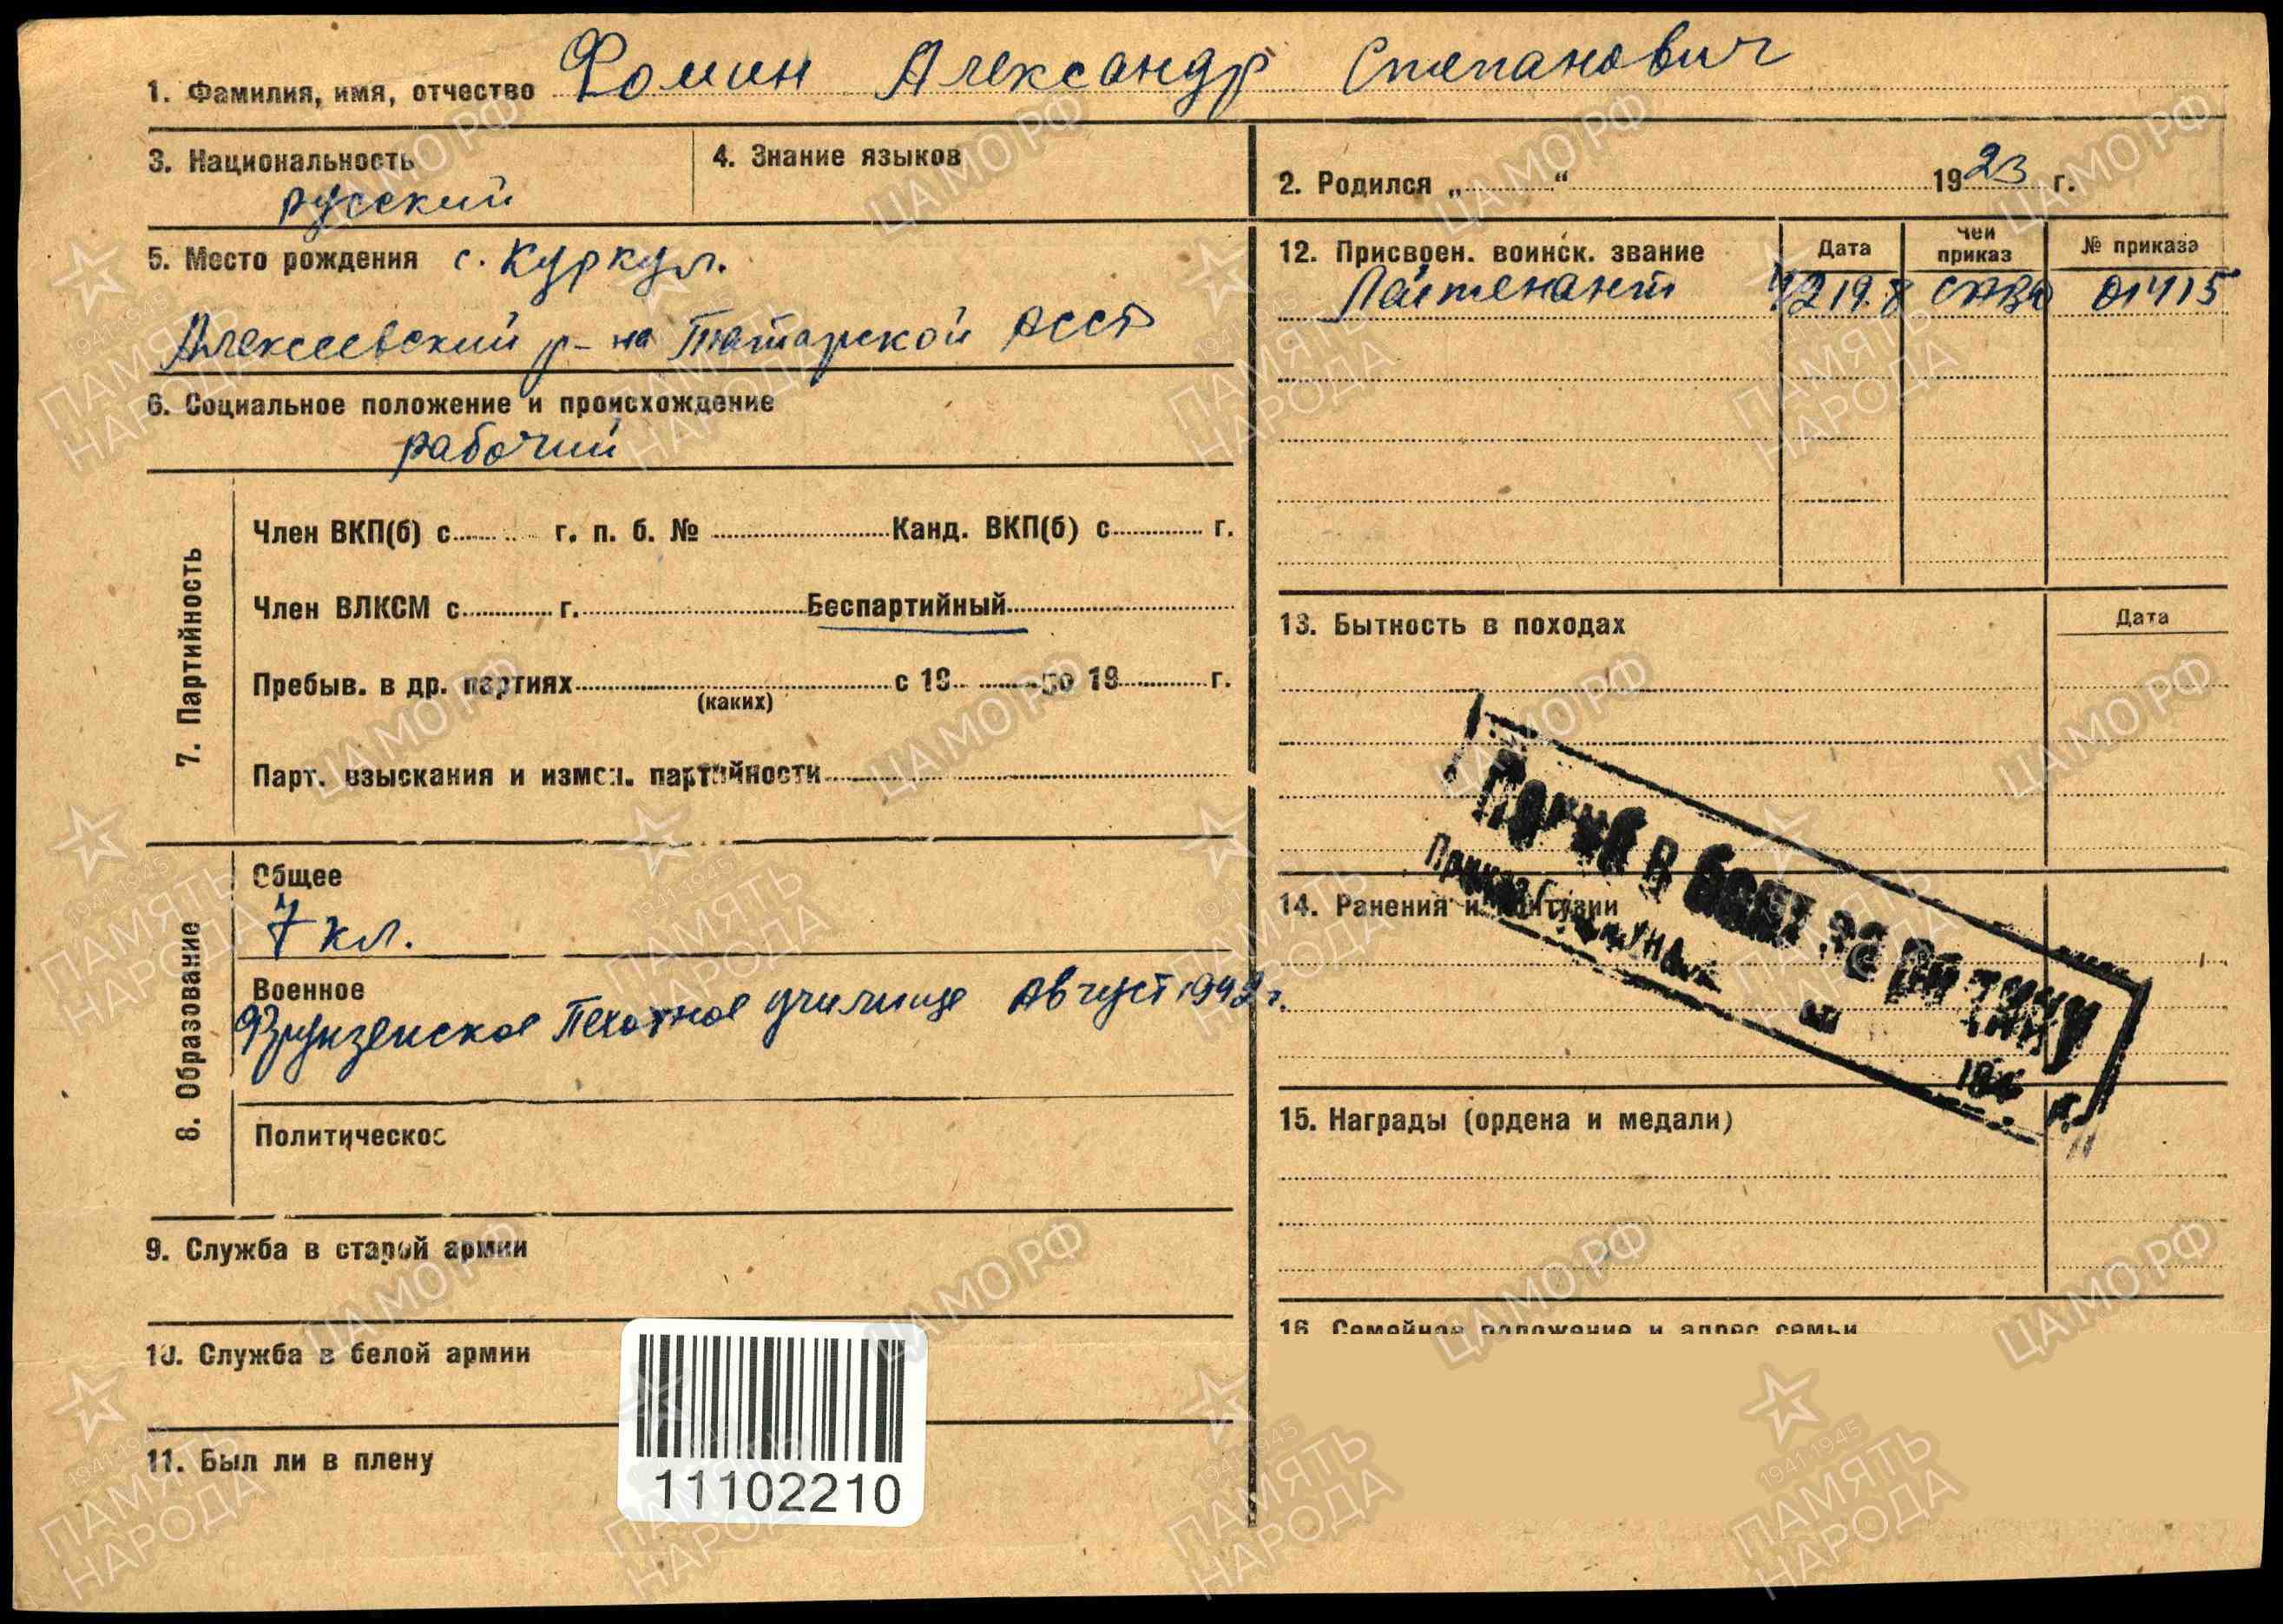 1. Фамилия, имя, отчество Фомин Александр Степанович
3. Национальность
русский
4. Знание языков
2. Родился „ “ 1923 г.
5. Место рождения с. Куркул.
Алексеевский р-на Татарской АССР
6. Социальное положение и происхождение
рабочий
7. Партийность
Член ВКП(б) с г. п. б. № Канд. ВКП(б) с г.
Член ВЛКСМ с г. Беспартийный
Пребыв. в др. партиях с 19 по 19 г.
(каких)
Парт. взыскания и измен. партийности
8. Образование
Общее
7 кл.
Военное
Фрунзенское Пехотное училище Август 1942 г.
Политическое
9. Служба в старой армии
10. Служба в белой армии
11. Был ли в плену
11102210
12. Присвоен. воинск. звание Дата Чей приказ № приказа
Лейтенант САВО 01415
13. Бытность в походах Дата
14. Ранения и контузии
Погиб в боях за Родину
Приказ
15. Награды (ордена и медали)
16 Семейное положение и адрес семьи
ЦАМО.РФ
1941-1945
ПАМЯТЬ
НАРОДА